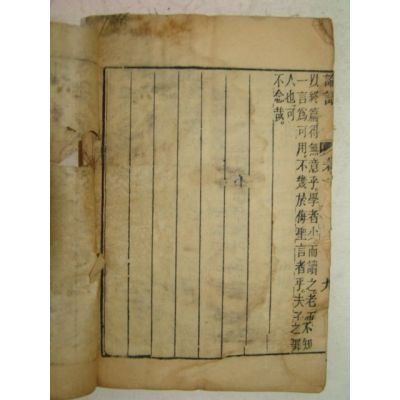 論語
以終篇得無意乎學者少而讀之老而不知
一言爲可用不幾於侮聖言者乎夫子之罪
人也可
不念哉。